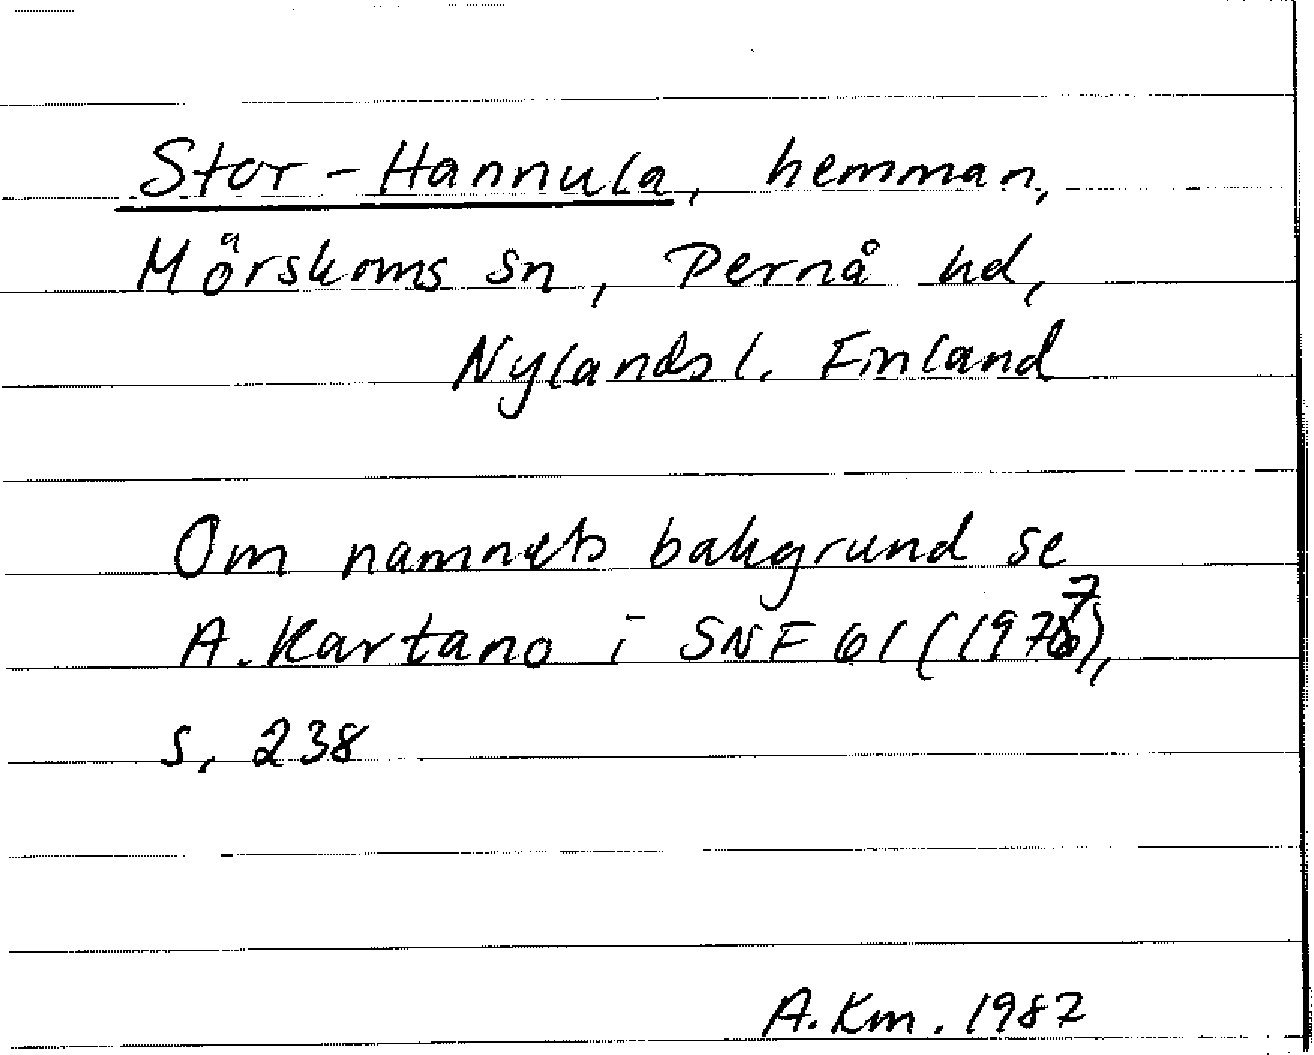 Stor-Hannula, hemman,
Mörskoms sn, Pernå hd,
Nylands l. Finland
Om namnets bakgrund se
A. Kartano i SNF 61 (1977),
s. 238
A. Km. 1987